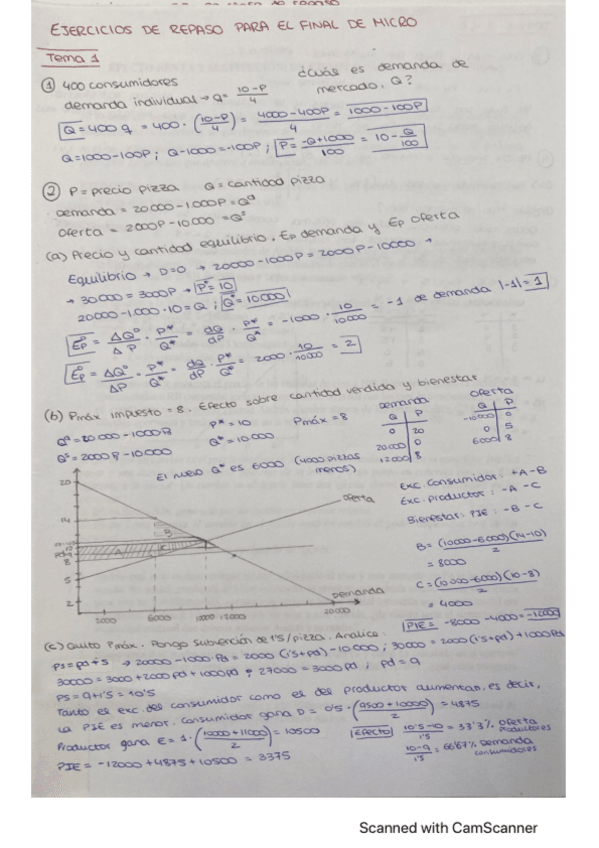 EJERCICIOS DE REPASO PARA EL FINAL DE MICRO
Tema 1
① 400 consumidores
demanda individual → q = (10-P)/4
¿Cuás es demanda de mercado, Q?
Q = 400q = 400 · ((10-P)/4) = (4000-400P)/4 = 1000-100P
Q=1000-100P; Q-1000=-100P; P = (-Q+1000)/100 = 10 - Q/100
② P=precio pizza Q=cantidad pizza
Demanda = 20000-1000P=Qᴰ
Oferta = 2000P-10000=Qˢ
(a) Precio y cantidad equilibrio, Ep demanda y Ep oferta
Equilibrio → D=O → 20000-1000P = 2000P-10000 →
→ 30000=3000P → P*=10
20000-1.000·10=Q; Q*=10000
Eᴰp = ΔQᴰ/ΔP · P*/Q* = dQ/dP · P*/Q* = -1000 · 10/10000 = -1 de demanda |-1|=1
Eᴼp = ΔQᴼ/ΔP · P*/Q* = dQ/dP · P*/Q* = 2000 · 10/10000 = 2
(b) Pmáx impuesto = 8. Efecto sobre cantidad vendida y bienestar
Qᴰ=20000-1000P
Qˢ=2000P-10000
P*=10
Q*=10000
Pmáx=8
Demanda
Q P
0 20
20.000 0
12000 8
Oferta
Q P
-10000 0
0 5
6000 8
El nuevo Q* es 6000 (4000 pizzas menos)
20
Oferta
A
8
5
2
2000 6000 10000 12000 20.000
Demanda
Exc. Consumidor: +A-B
Exc. productor: -A-C
Bienestar: PIE: -B-C
B = (10000-6000)(14-10)/2
= 8000
C = (10000-6000)(10-8)/2
= 4000
PIE = -8000-4000=-12000
(c) Quito Pmáx. Pongo subvención de 1'5/pizza. Analice:
Ps=Pd+s → 20000-1000Pd = 2000(1'5+Pd)-10000; 30000=2000(1'5+Pd)+1000Pd
30000=3000+2000pd+1000pd; 27000=3000pd; pd=9
PS=9+1'5=10'5
Tanto el exc. del consumidor como el del productor aumentan, es decir,
la PIE es menor. Consumidor gana D = 0'5 · ((9500+10000)/2) = 4875
Productor gana E = 1 · ((10000+11000)/2) = 10500
PIE = -12000+4875+10500 = 3375
Efecto
(10'5-10)/1'5 = 33'3% oferta productores
(10-9)/1'5 = 66'67% demanda consumidores
Scanned with CamScanner